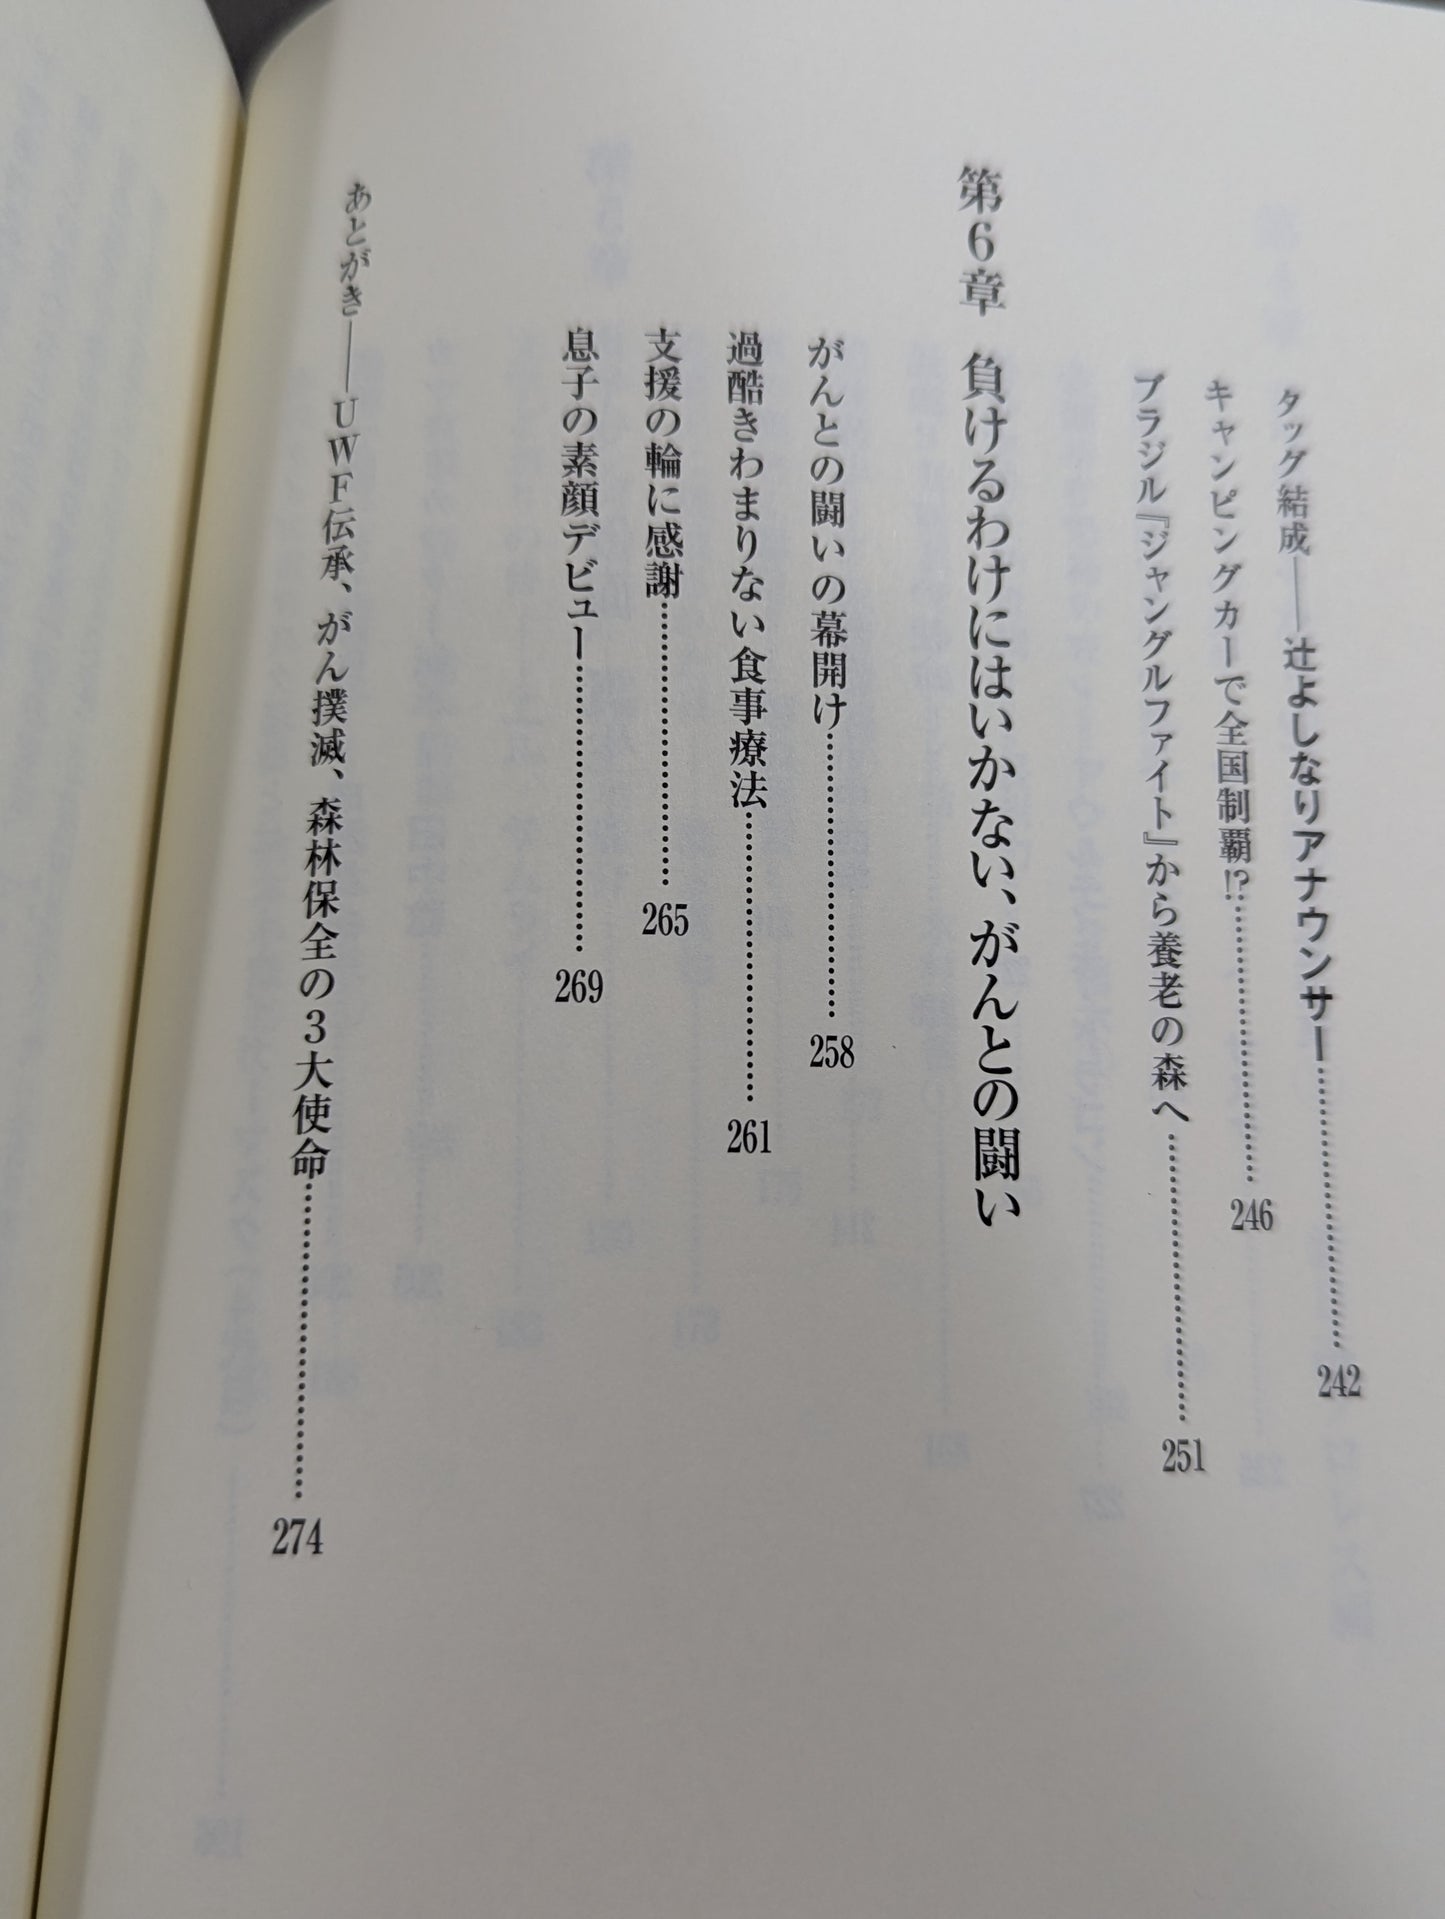 タッグ結成――辻よしなりアナウンサー……………………242
キャンピングカーで全国制覇!?……………………246
ブラジル『ジャングルファイト』から養老の森へ……………………251
第6章 負けるわけにはいかない、がんとの闘い
がんとの闘いの幕開け……………………258
過酷きわまりない食事療法……………………261
支援の輪に感謝……………………265
息子の素顔デビュー……………………269
あとがき――UWF伝承、がん撲滅、森林保全の3大使命……………………274